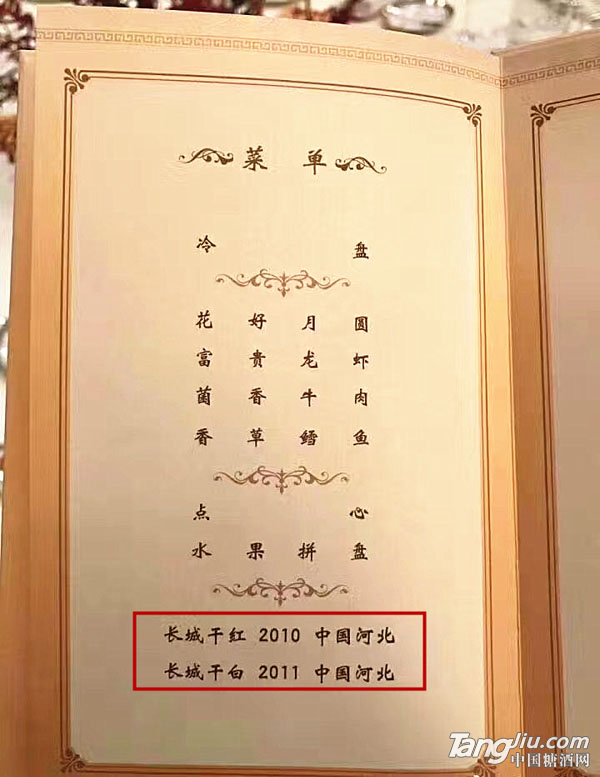 菜 单
冷 盘
花 好 月 圆
富 贵 龙 虾
菌 香 牛 肉
香 草 鳕 鱼
点 心
水 果 拼 盘
长城干红 2010 中国河北
长城干白 2011 中国河北
Tangliu.com
中国糖酒网